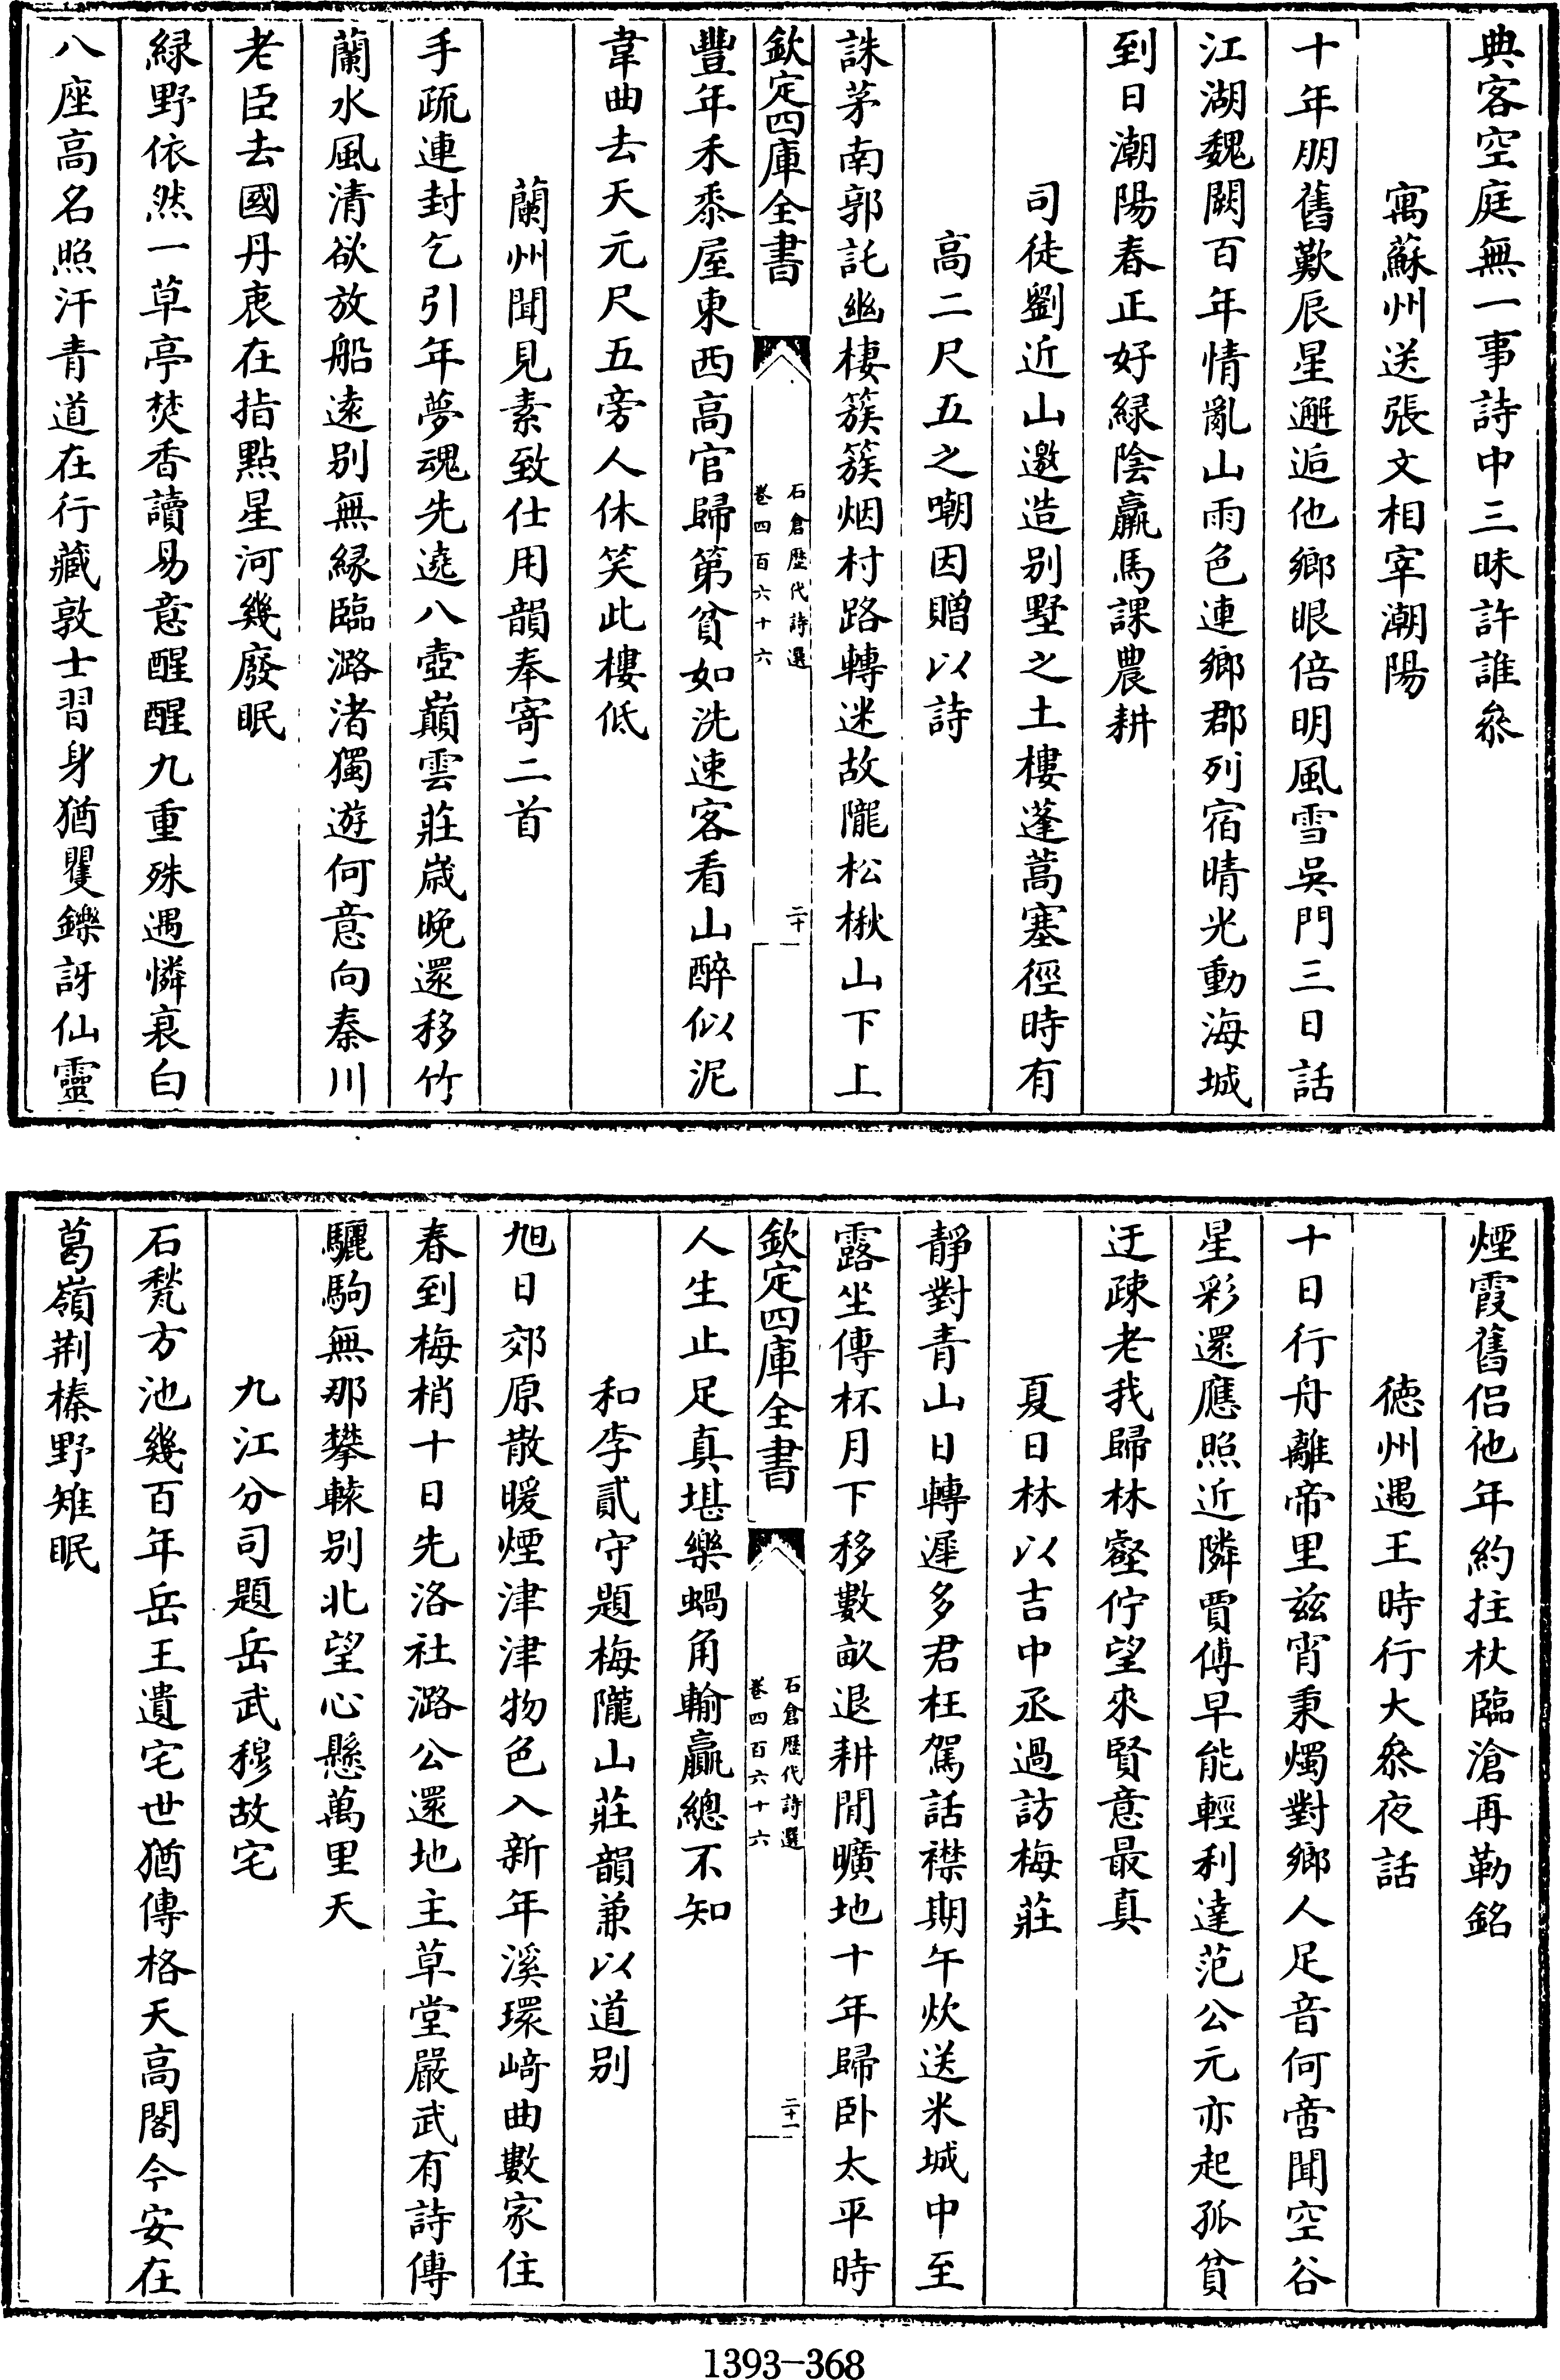 典客空庭無一事詩中三昧許誰叅
寓蘇州送張文相宰潮陽
十年朋舊歎辰星邂逅他鄉眼倍明風雪吳門三日話
江湖魏闕百年情亂山雨色連鄉郡列宿晴光動海城
到日潮陽春正好緑陰羸馬課農耕
司徒劉近山邀造别墅之土樓蓬蒿塞徑時有
高二尺五之嘲因贈以詩
誅茅南郭託幽棲簇簇烟村路轉迷故隴松楸山下上
欽定四庫全書
石倉歴代詩選
卷四百六十六
二十
豐年禾黍屋東西高官歸第貧如洗速客看山醉似泥
韋曲去天元尺五旁人休笑此樓低
蘭州聞見素致仕用韻奉寄二首
手疏連封乞引年夢魂先遶八壺巔雲莊嵗晚還移竹
蘭水風清欲放船逺别無縁臨潞渚獨遊何意向秦川
老臣去國丹衷在指點星河幾廢眠
緑野依然一草亭焚香讀易意醒醒九重殊遇憐衰白
八座高名照汗青道在行藏敦士習身猶矍鑠訝仙靈
煙霞舊侣他年約拄杖臨滄再勒銘
徳州遇王時行大叅夜話
十日行舟離帝里兹宵秉燭對鄉人足音何啻聞空谷
星彩還應照近隣賈傅早能輕利達范公元亦起孤貧
迂疎老我歸林壑佇望來賢意最真
夏日林以吉中丞過訪梅莊
靜對青山日轉遲多君枉駕話襟期午炊送米城中至
露坐傳杯月下移數畝退耕閒曠地十年歸卧太平時
欽定四庫全書
石倉歴代詩選
卷四百六十六
二十一
人生止足真堪樂蝸角輸贏總不知
和李貳守題梅隴山莊韻兼以道别
旭日郊原散暖煙津津物色入新年溪環﨑曲數家住
春到梅梢十日先洛社潞公還地主草堂嚴武有詩傳
驪駒無那攀轅别北望心懸萬里天
九江分司題岳武穆故宅
石甃方池幾百年岳王遺宅世猶傳格天高閣今安在
葛嶺荆榛野雉眠
1393-368